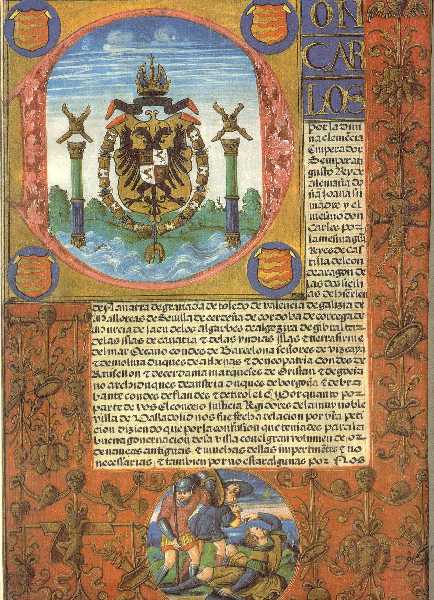 ON
CAR
LOS
por la divi
na clemẽcia
Emperador
Semper au
gusto Rey de
alemaña do
ña Joana su
madre y el
mesmo don
Carlos por
la mesma gra
Reyes de cas
tilla de leon
de aragon de
las dos seçili
as de hierlen
de Navarra de granada de toledo de valencia de galizia de
Mallorcas de Sevilla de cerdeña de cordova de corcega de
Murcia de Jaen de los algarbes de algezira de gibraltar
de las islas de canaria & de las yndias islas & tierra firme
del mar Oceano condes de Barcelona señores de vizcaya
& de molina duques de athenas & de neopatria condes de
Ruisellon & de cerdania marqueses de Oristan & de gocia
no archiduques de austria duques de borgoña & de bra
bante condes de flandes & de tirol etc. Por quanto por
parte de vos El concejo Justicia Regidores de la muy noble
villa de Valladolid nos fue fecha relacion por vña peti
cion diziendo que por la confusion que teniades para la
buena governacion desa villa con el gran volumen de or
denancas antiguas & muchas dellas impertinẽtes & no
necessarias & tambien por no estar algunas por Nos